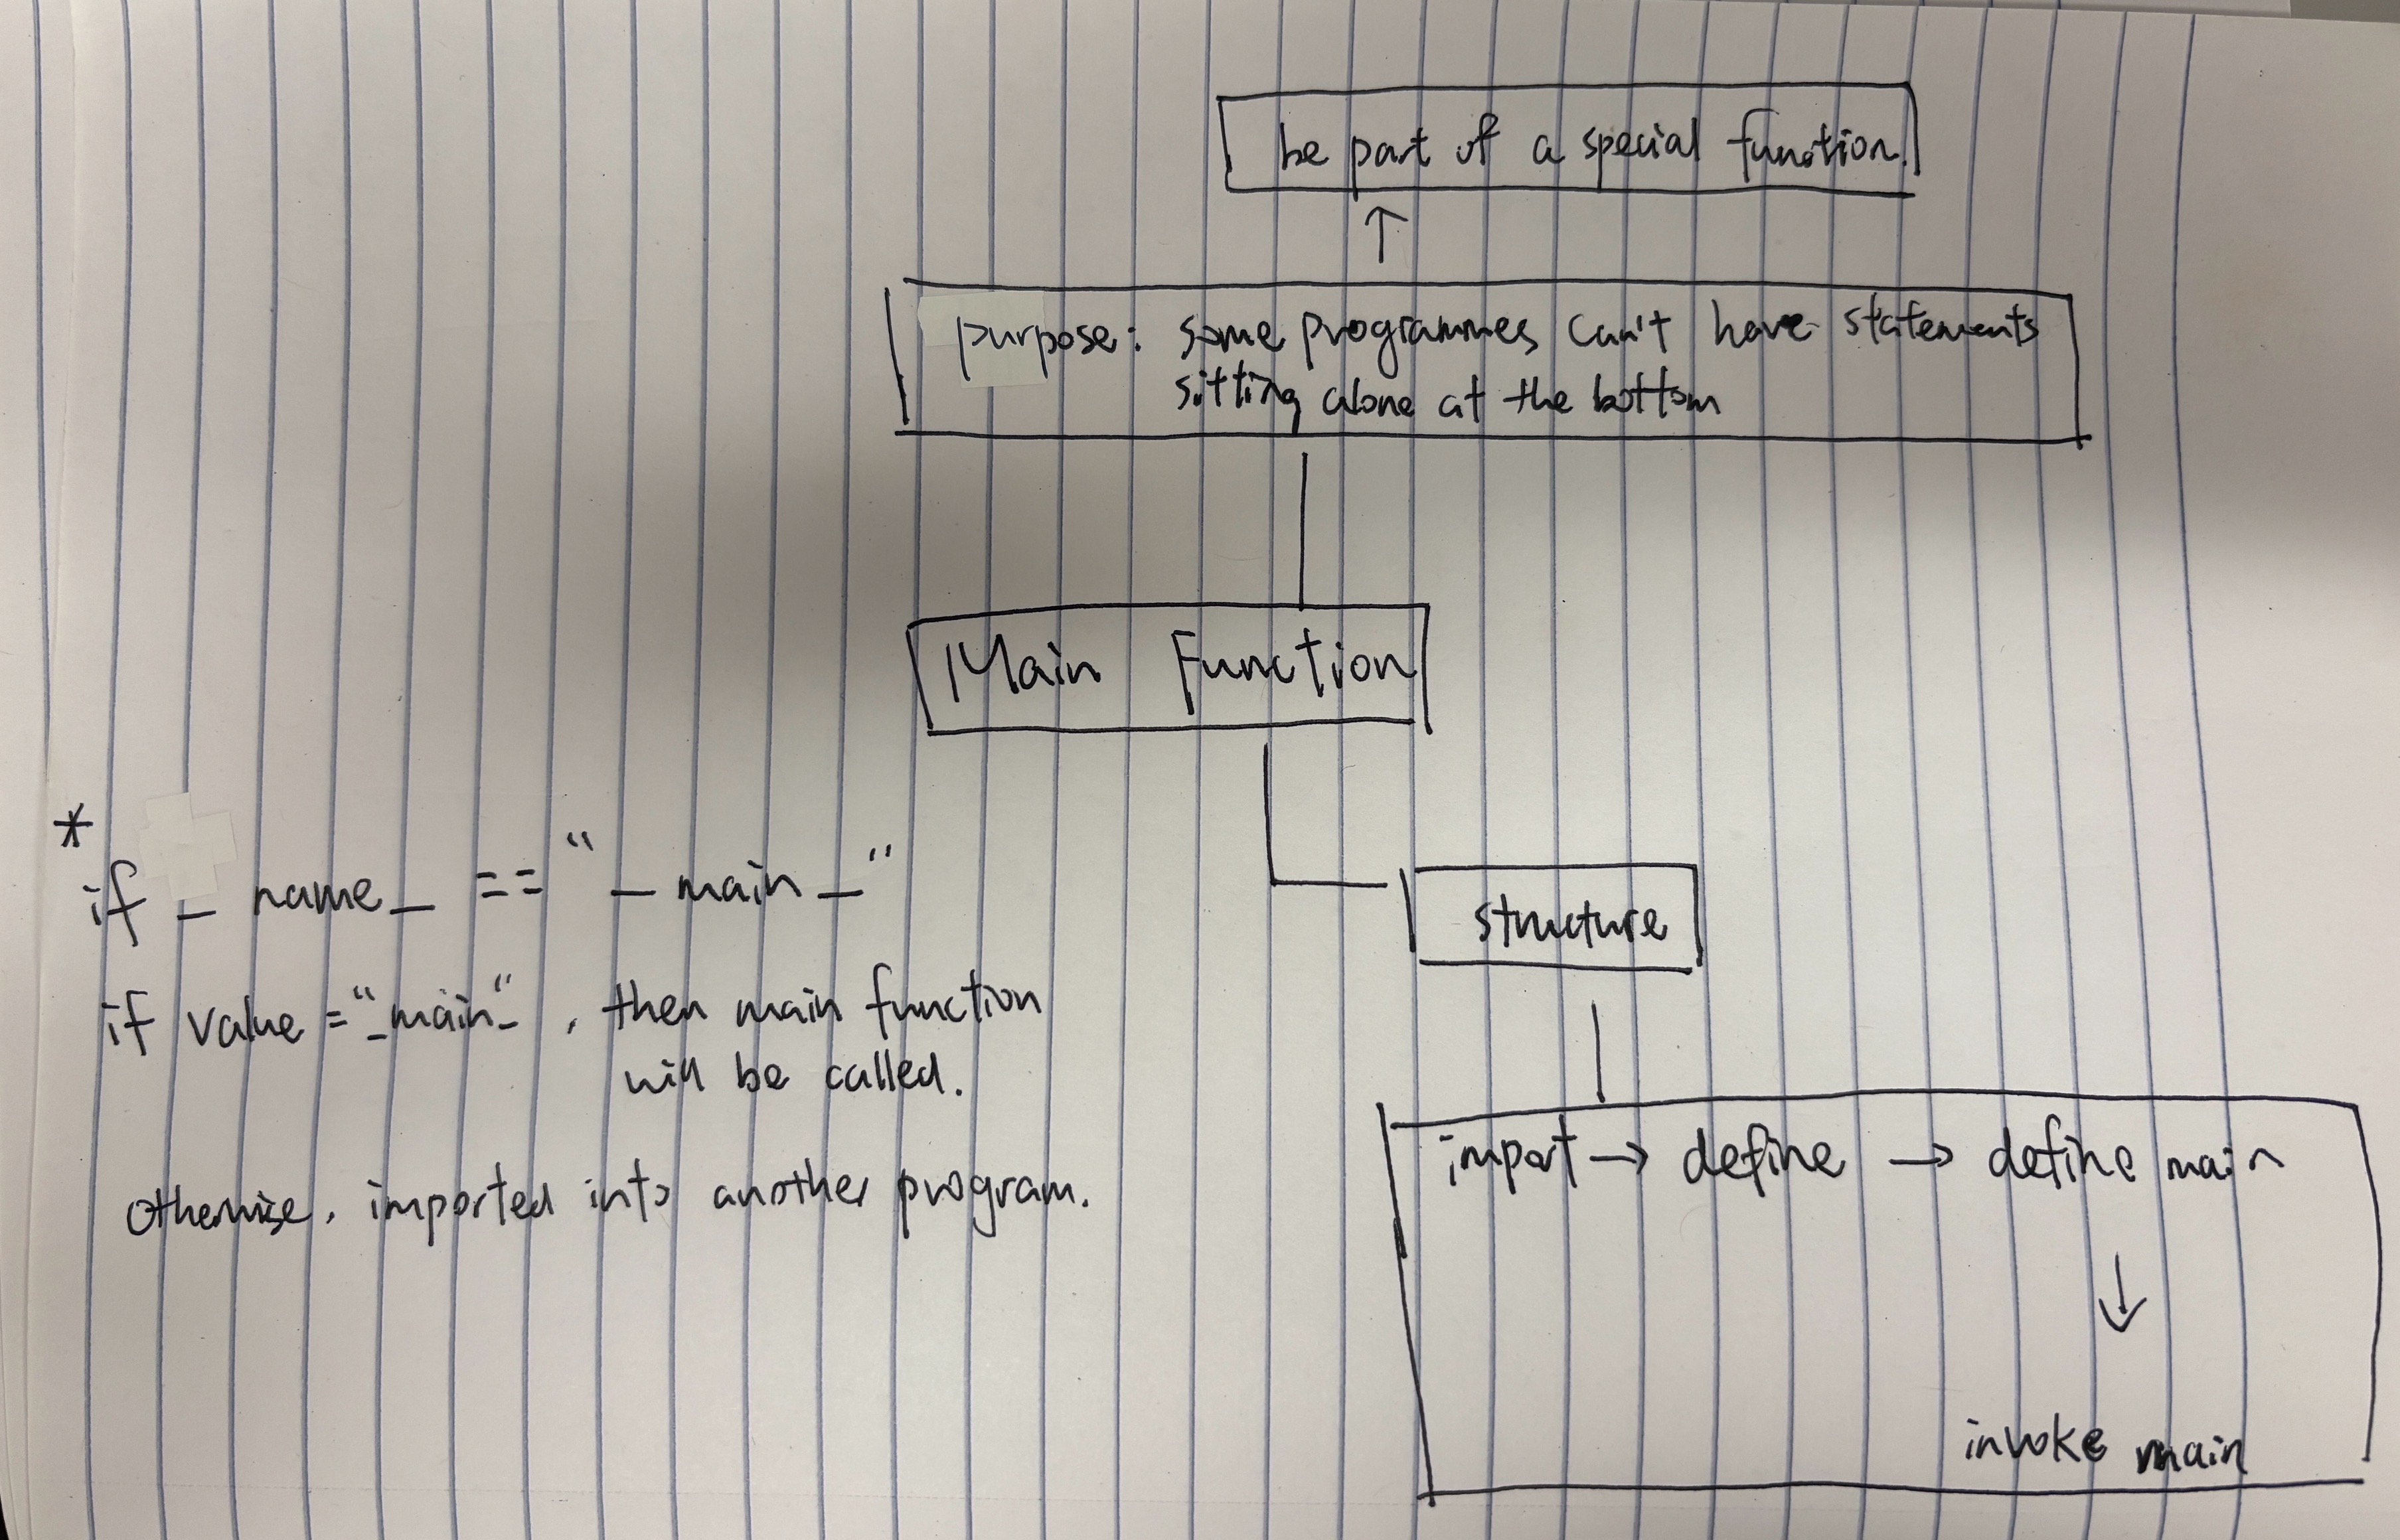 be part of a special function.
↑
purpose: some programmes can't have statements
sitting alone at the bottom
Main Function
structure
import → define → define main
↓
invoke main
*
if _ name _ == "_ main _"
if value = "_main_", then main function
will be called.
otherwise, imported into another program.